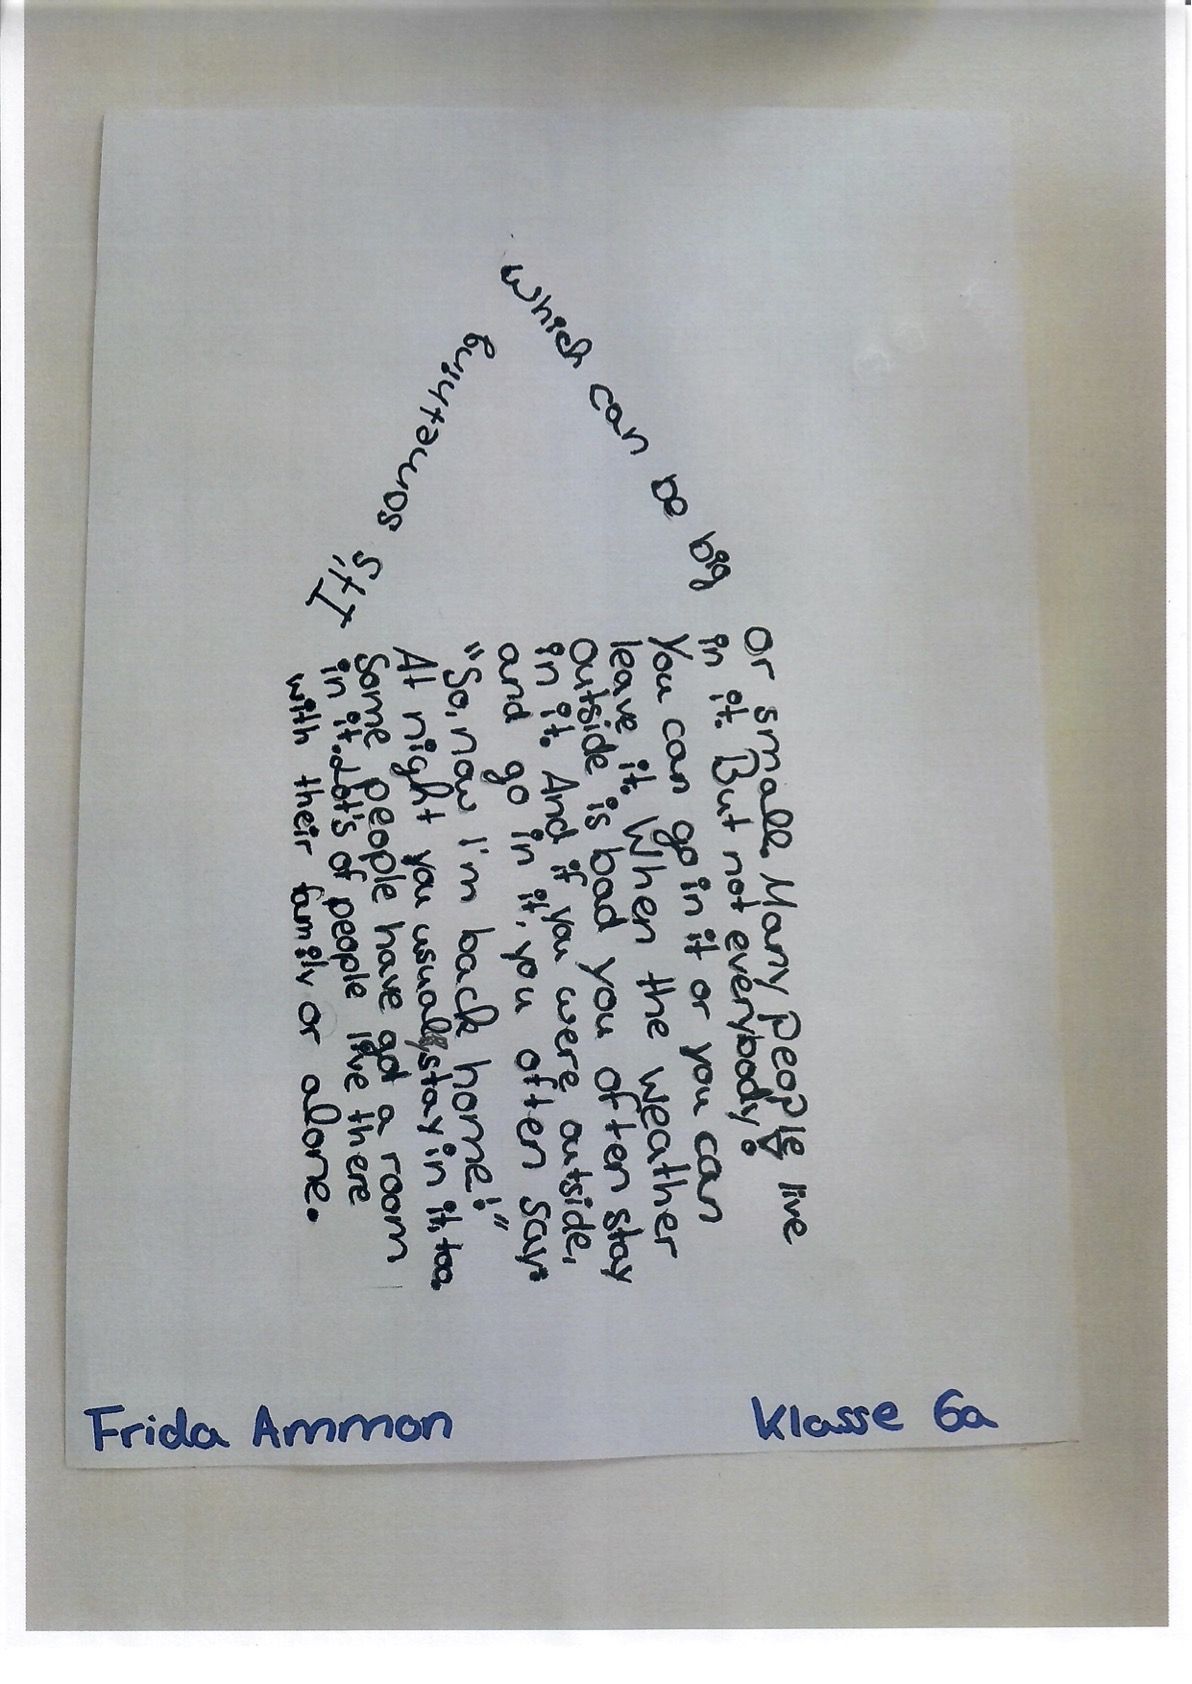 It's something
which can be big
or small. Many people live
in it. But not everybody!
You can go in it or you can
leave it. When the weather
outside is bad you often stay
in it. And if you were outside,
and go in it, you often say:
"So, now I'm back home!"
At night you usually stay in it, too.
Some people have got a room
in it. Lot's of people live there
with their family or alone.
Frida Ammon
Klasse 6a